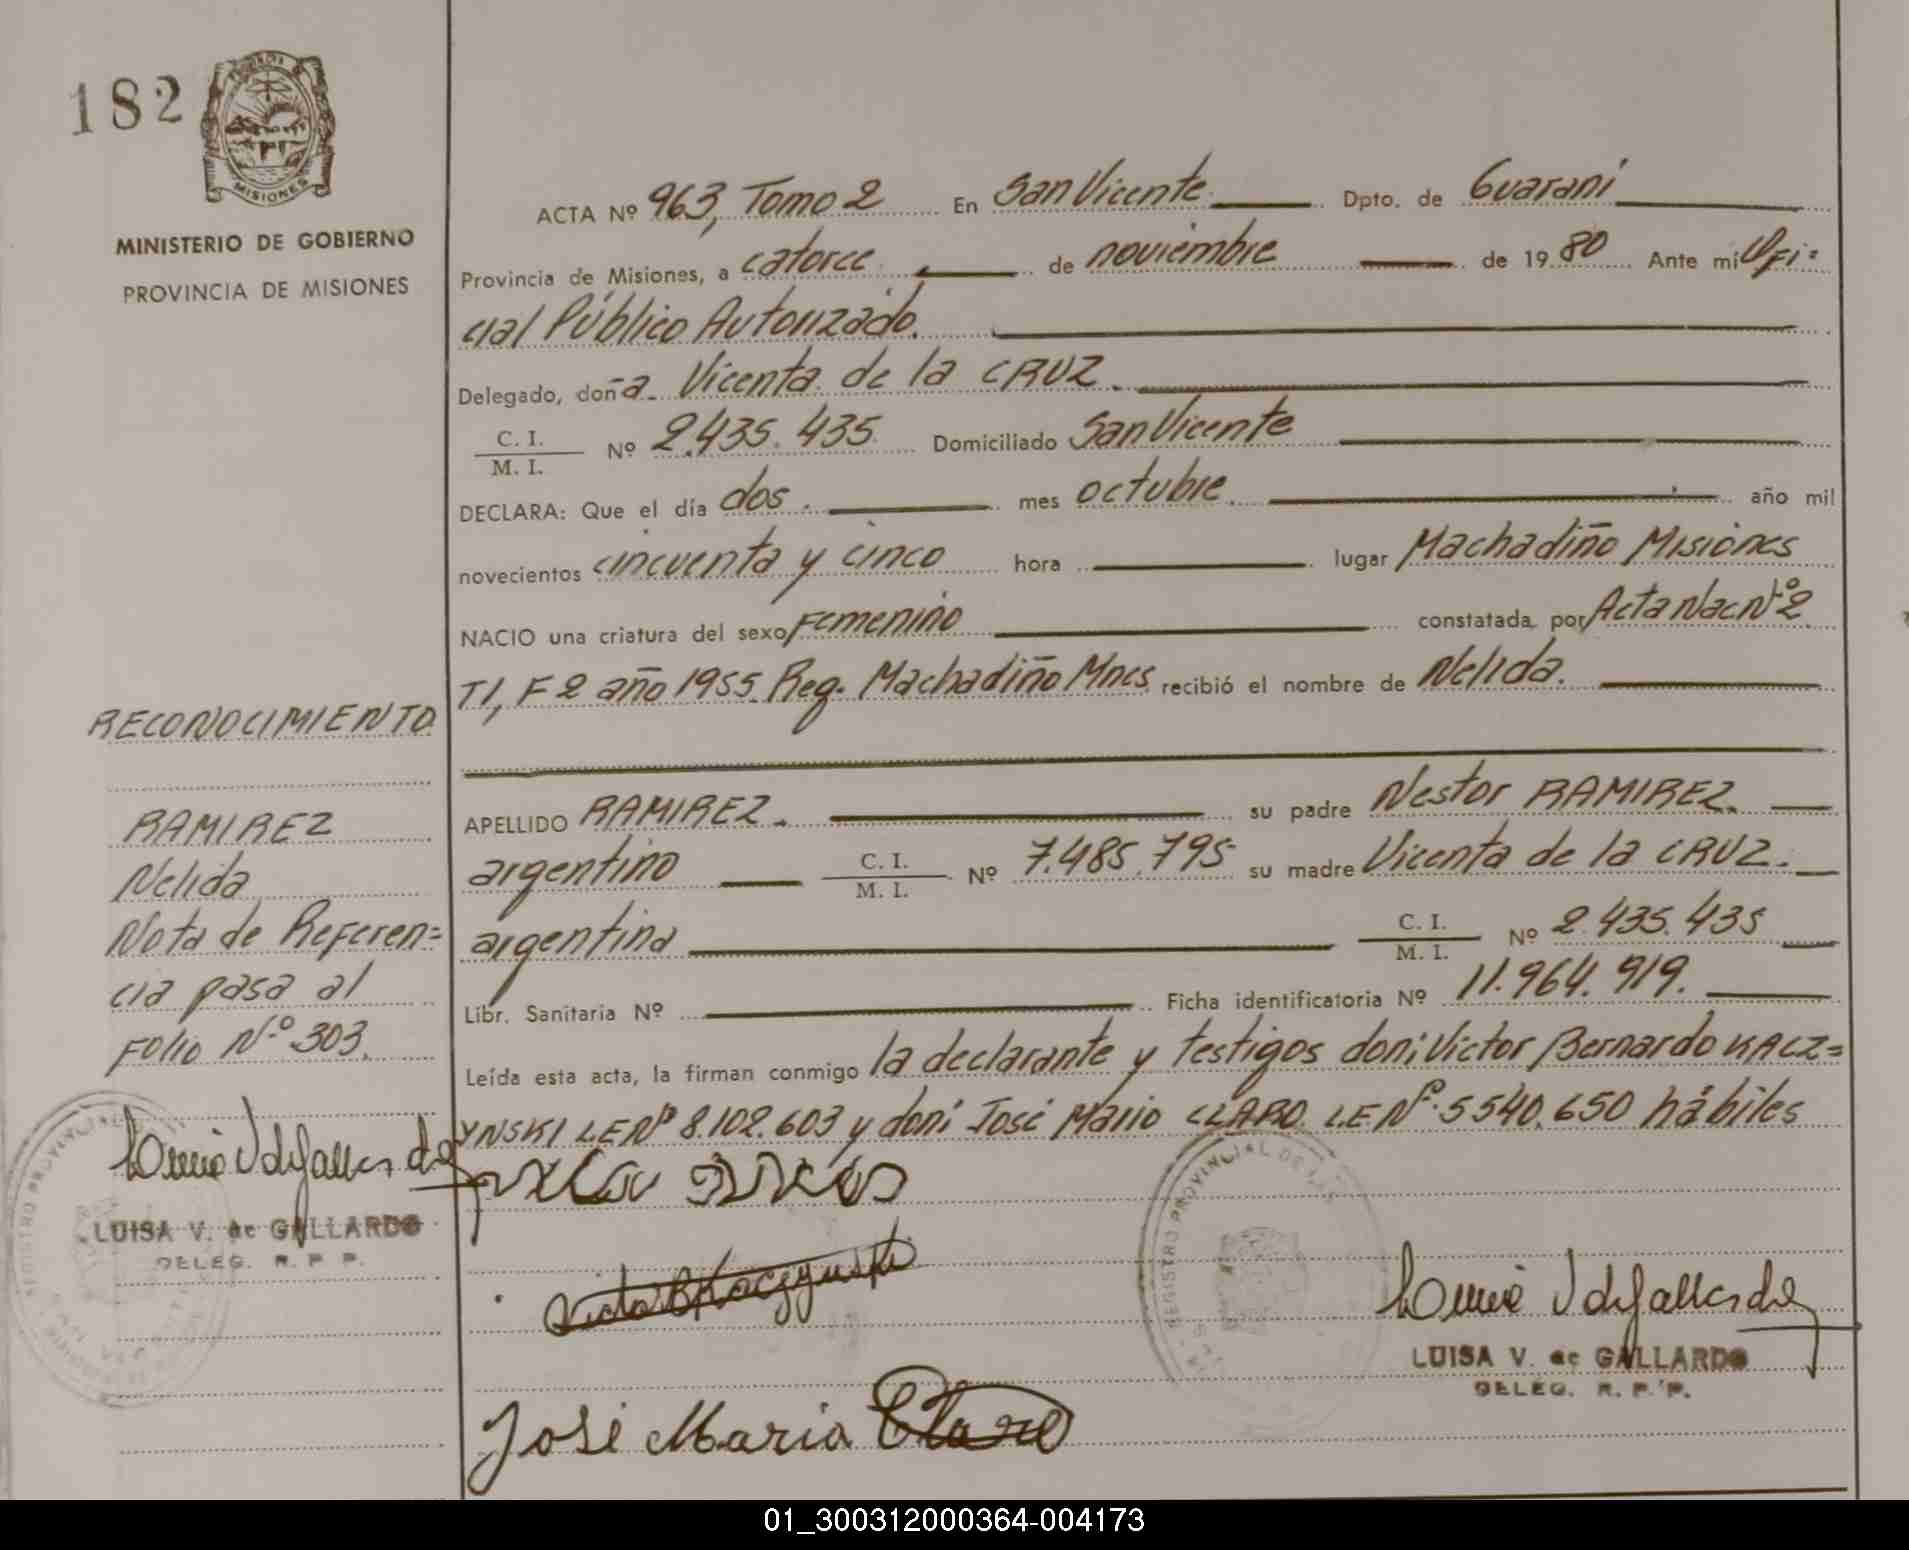 182
MISIONES
MINISTERIO DE GOBIERNO
PROVINCIA DE MISIONES
RECONOCIMIENTO
RAMIREZ
Nelida
Nota de Referen=
cia pasa al
Folio Nº 303.
LUISA V. de GALLARDO
DELEG. R. P. P.
ACTA Nº 963, Tomo 2 En San Vicente Dpto. de Guaraní
Provincia de Misiones, a catorce de noviembre de 1980 Ante mí Ofi=
cial Público Autorizado.
Delegado, doña. Vicenta de la CRUZ.
C. I.
M. I. Nº 2.435.435 Domiciliado San Vicente
DECLARA: Que el día dos. mes octubre. año mil
novecientos cincuenta y cinco hora lugar Machadiño Misiones
NACIO una criatura del sexo Femenino constatada por Acta Nac Nº 2
T1, F2 año 1955. Reg. Machadiño Mnes recibió el nombre de Nelida.
APELLIDO RAMIREZ. su padre Nestor RAMIREZ.
argentino C. I.
M. I. Nº 7.485.795 su madre Vicenta de la CRUZ.
argentina C. I.
M. I. Nº 2.435.435
Libr. Sanitaria Nº Ficha identificatoria Nº 11.964.919.
Leída esta acta, la firman conmigo la declarante y testigos don: Victor Bernardo KACZ=
YNSKI LE Nº 8.102.603 y don: José Mario CLARO. LE Nº 5540.650 hábiles
REGISTRO PROVINCIAL DE LAS
José Maria Claro
LUISA V. de GALLARDO
DELEG. R. P. P.
01_300312000364-004173